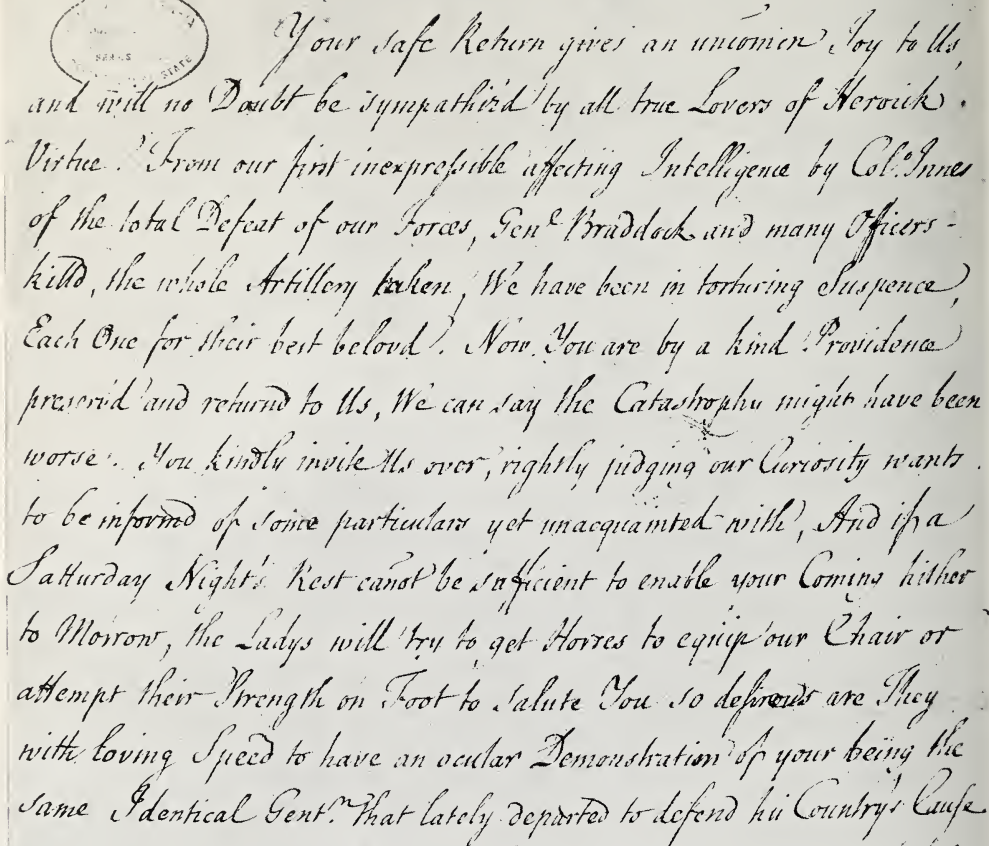 SEALS
STATE
Your safe Return gives an uncom̄on Joy to Us,
and will no Doubt be sympathiz'd by all true Lovers of Heroick
Virtue. From our first inexpressible affecting Intelligence by Colo. Innes
of the total Defeat of our Forces, Genl Braddock and many Officers -
killd, the whole Artillery taken, We have been in torturing Suspence,
Each One for their best belovd. Now You are by a kind Providence
preserv'd and returnd to Us, We can say the Catastrophe might have been
worse. You kindly invite Us over, rightly judging our Curiosity wants
to be informd of some particulars yet unacquainted with, And if a
Satturday Night's Rest can̄ot be sufficient to enable your Coming hither
to Morrow, the Ladys will try to get Horses to equip our Chair or
attempt their Strength on Foot to Salute You so desirous are They
with loving Speed to have an ocular Demonstration of your being the
same Identical Gentn. that lately departed to defend his Country's Cause